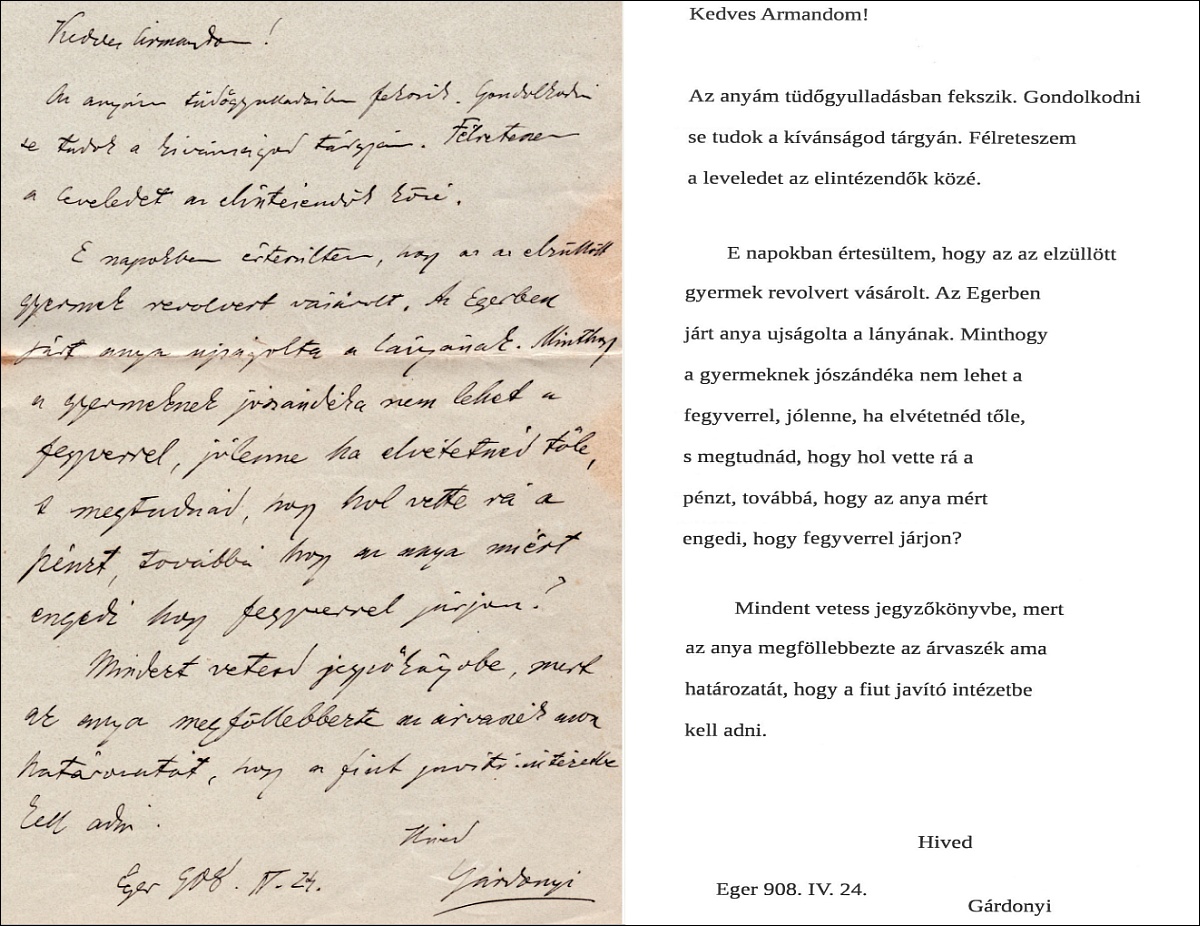 Kedves Armandom!
Az anyám tüdőgyulladásban fekszik. Gondolkodni
se tudok a kívánságod tárgyán. Félreteszem
a leveledet az elintézendők közé.
E napokban értesültem, hogy az az elzüllött
gyermek revolvert vásárolt. Az Egerben
járt anya ujságolta a lányának. Minthogy
a gyermeknek jószándéka nem lehet a
fegyverrel, jólenne ha elvétetnéd tőle,
s megtudnád, hogy hol vette rá a
pénzt, továbbá hogy az anya miért
engedi hogy fegyverrel járjon?
Mindezt vetesd jegyzőkönyvbe, mert
az anya megföllebbezte az árvaszék ama
határozatát, hogy a fiut javító intézetbe
kell adni.
Hived
Eger 908. IV. 24.
Gárdonyi
Kedves Armandom!
Az anyám tüdőgyulladásban fekszik. Gondolkodni
se tudok a kívánságod tárgyán. Félreteszem
a leveledet az elintézendők közé.
E napokban értesültem, hogy az az elzüllött
gyermek revolvert vásárolt. Az Egerben
járt anya ujságolta a lányának. Minthogy
a gyermeknek jószándéka nem lehet a
fegyverrel, jólenne, ha elvétetnéd tőle,
s megtudnád, hogy hol vette rá a
pénzt, továbbá, hogy az anya mért
engedi, hogy fegyverrel járjon?
Mindent vetess jegyzőkönyvbe, mert
az anya megföllebbezte az árvaszék ama
határozatát, hogy a fiut javító intézetbe
kell adni.
Hived
Eger 908. IV. 24.
Gárdonyi